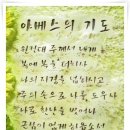 야베스의 기도
원컨대 주께서 내게
복에 복을 더하사
나의 지경을 넓히시고
주의 손으로 나를 도우사
나로 환난을 벗어나
근심이 없게 하옵소서